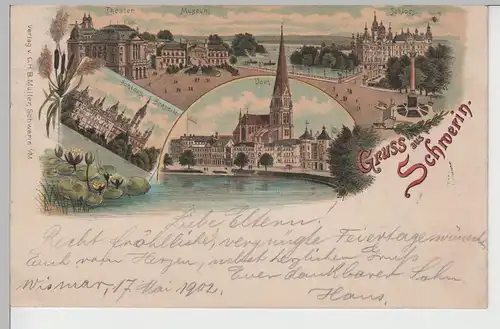 Theater.
Museum.
Schloss.
Verlag v. C.H.B. Müller, Schwerin i/M.
Schloss
Seeseite
Dom.
Gruss aus
Schwerin.
Liebe Eltern!
Recht fröhliche, vergnügte Feiertage wünscht
Euch vom Herzen, nebst herzlichen Gruß
Euer dankbarer Sohn
Wismar, 17 Mai 1902.
Hans.